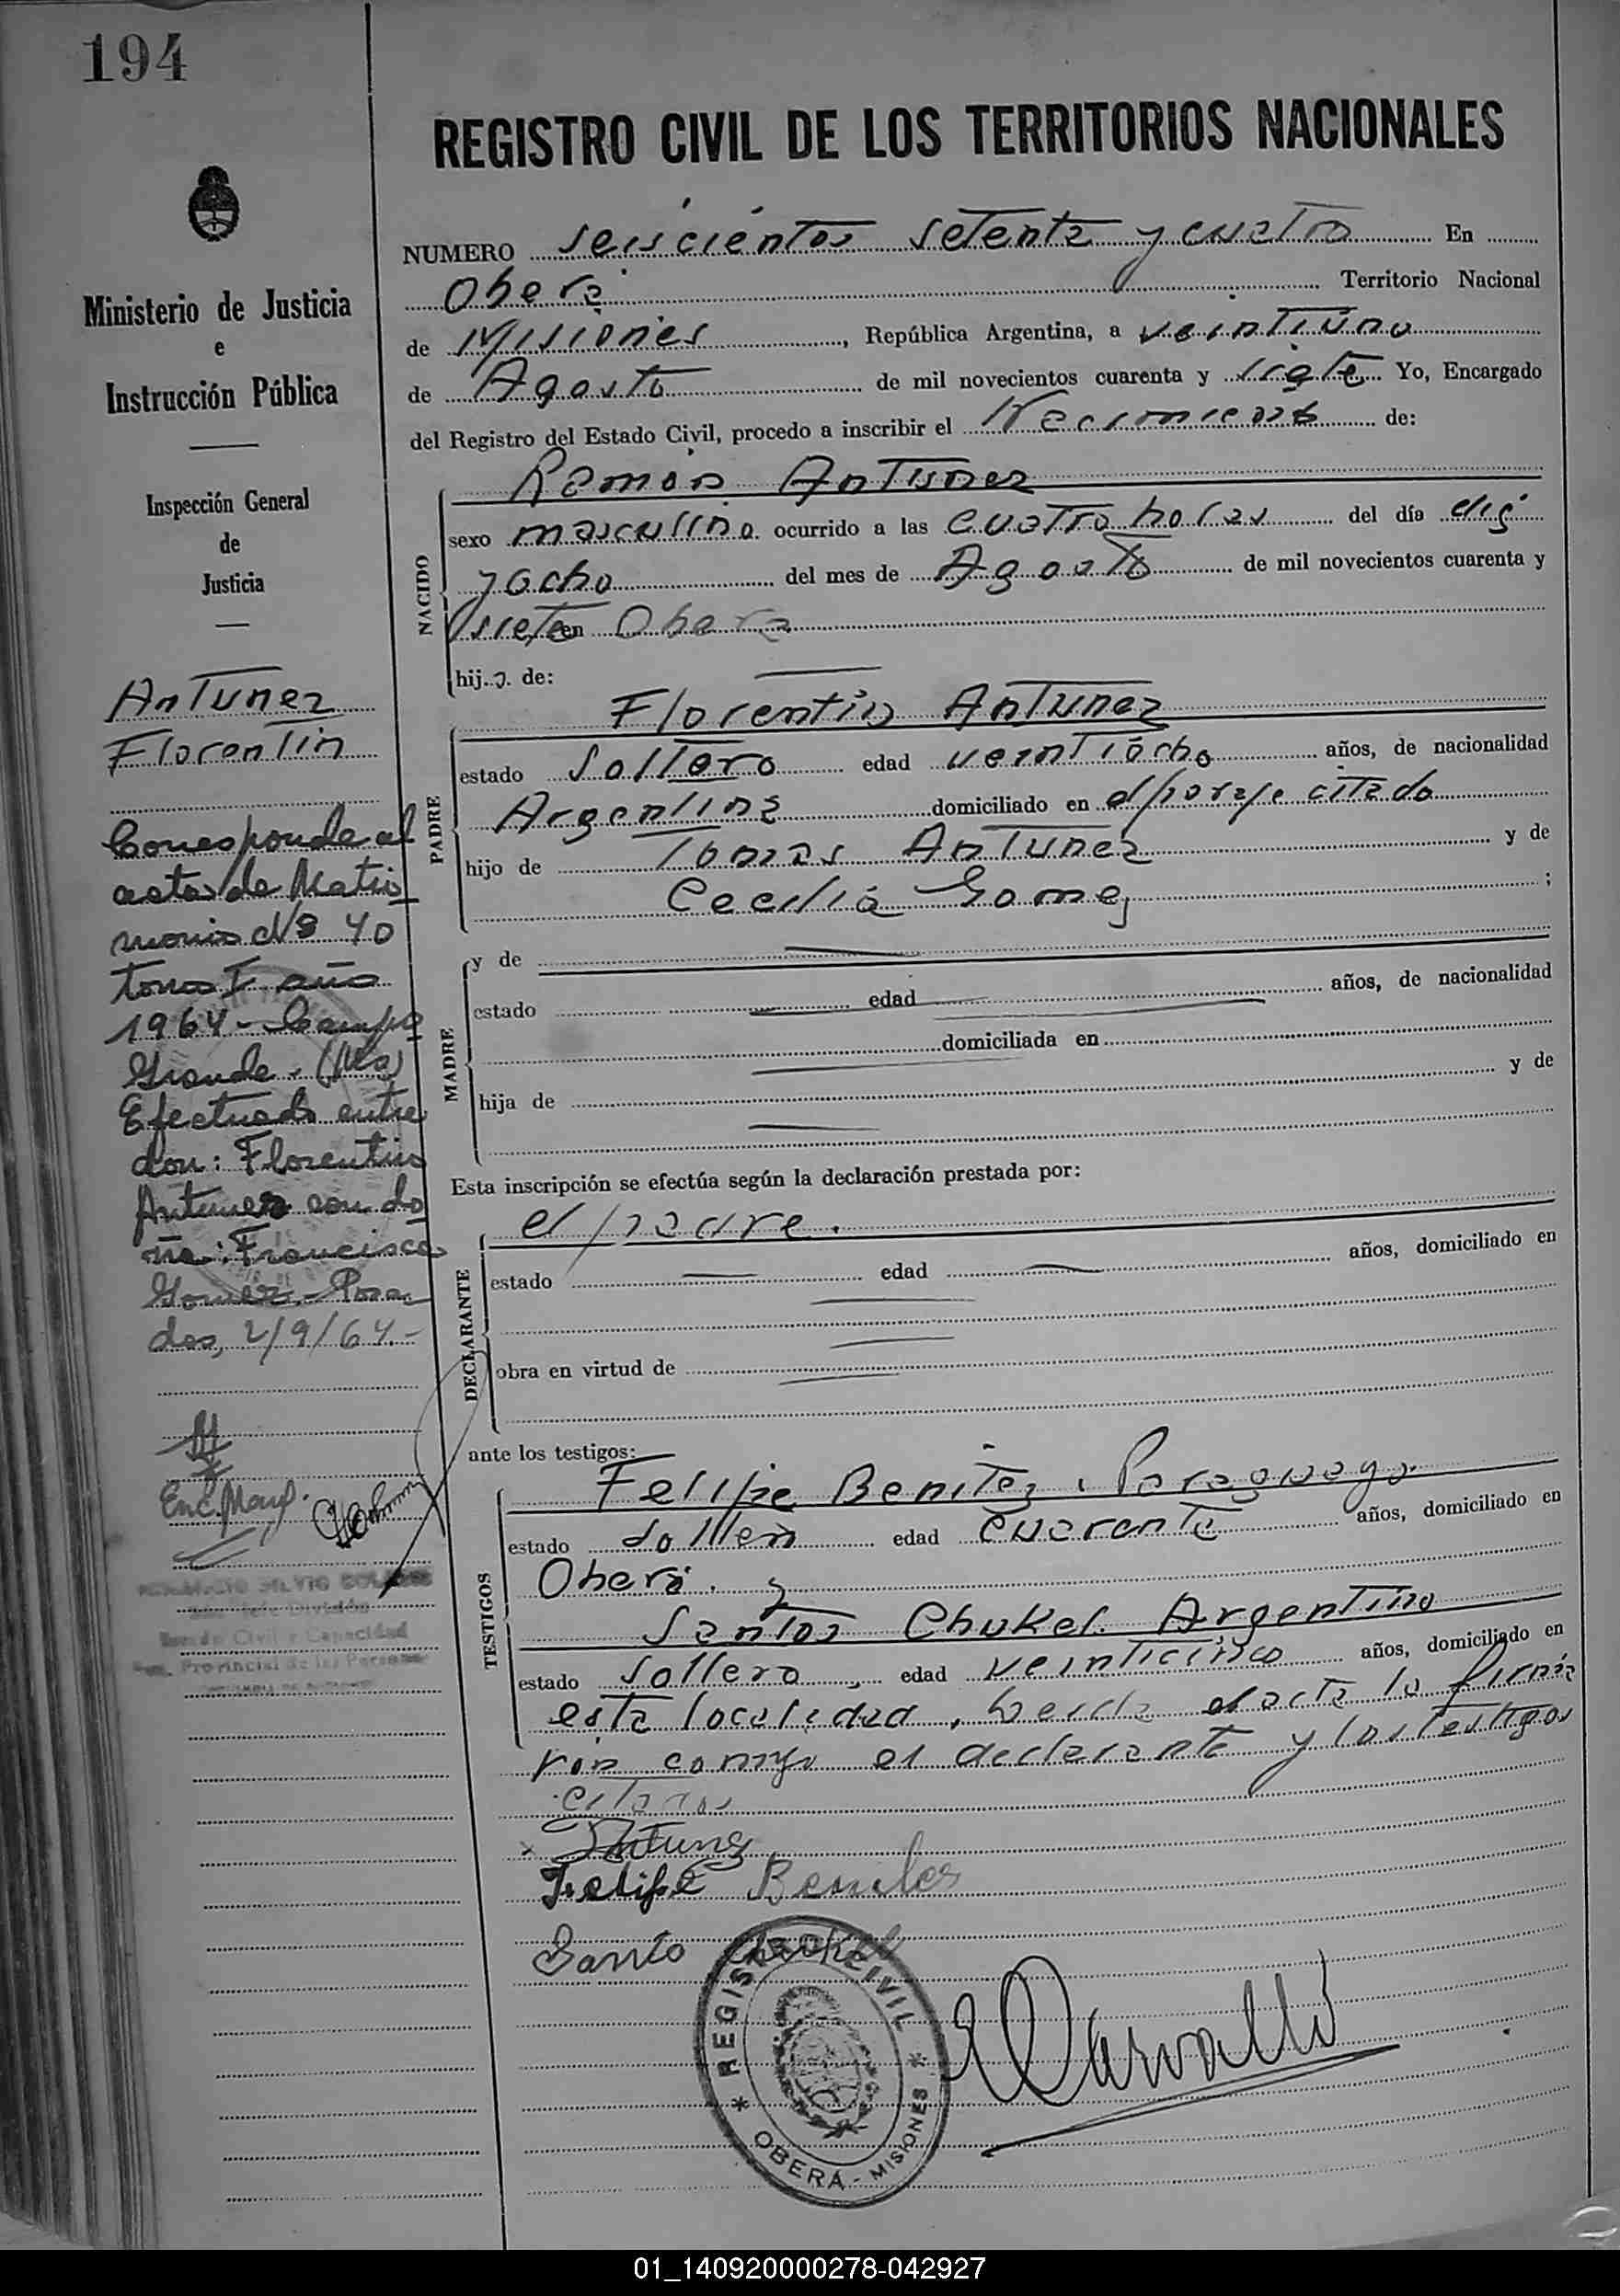 194
REGISTRO CIVIL DE LOS TERRITORIOS NACIONALES
Ministerio de Justicia
e
Instrucción Pública
Inspección General
de
Justicia
AnTunez
FlorenTin
Corresponde al
acta de Matri
monio Nº 40
tomo I año
1964 - Campo
Grande. (Mes)
Efectuado entre
don: Florentin
Antunez con do
ña: Francisca
Gomez.- Posa
das, 2/9/64.-
Enc. Marg.
NUMERO seiscientos setenta y cuatro En
Obera Territorio Nacional
de Misiones, República Argentina, a veintiuno
de Agosto de mil novecientos cuarenta y siete Yo, Encargado
del Registro del Estado Civil, procedo a inscribir el Nacimiento de:
NACIDO
Ramon Antunez
sexo masculino ocurrido a las cuatro horas del día diez
y ocho del mes de Agosto de mil novecientos cuarenta y
siete en Obera
hijo de:
PADRE
Florentin Antunez
estado Soltero edad veintiocho años, de nacionalidad
Argentina domiciliado en el paraje citado
hijo de Tomas Antunez y de
Cecilia Gomez;
MADRE
y de
estado edad años, de nacionalidad
domiciliada en
hija de y de
Esta inscripción se efectúa según la declaración prestada por:
DECLARANTE
el padre.
estado edad años, domiciliado en
obra en virtud de
ante los testigos:
TESTIGOS
Felipe Benitez, Paraguayo.
estado soltero edad cuarenta años, domiciliado en
Obera. y
Santos Chukel. Argentino
estado soltero, edad veinticinco años, domiciliado en
esta localidad, Leida el acta la firma
ron conmigo el declarante y los testigos
citados
x Antunez
Felipe Benites
Santo Chukel
REGISTRO CIVIL
OBERÁ - MISIONES
Carvallo
01_140920000278-042927